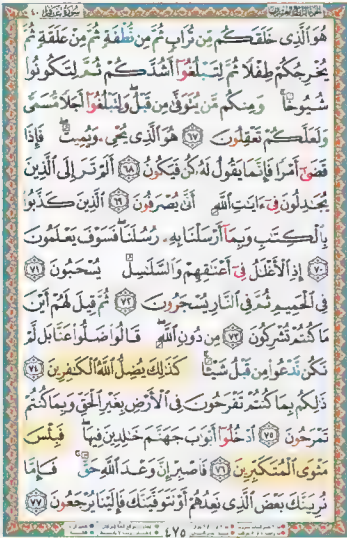 سورة غافر ٤٠
هُوَ ٱلَّذِى خَلَقَكُم مِّن تُرَابٍ ثُمَّ مِن نُّطْفَةٍ ثُمَّ مِنْ عَلَقَةٍ ثُمَّ
يُخْرِجُكُمْ طِفْلًا ثُمَّ لِتَبْلُغُوٓا۟ أَشُدَّكُمْ ثُمَّ لِتَكُونُوا۟
شُيُوخًا ۚ وَمِنكُم مَّن يُتَوَفَّىٰ مِن قَبْلُ ۖ وَلِتَبْلُغُوٓا۟ أَجَلًا مُّسَمًّى
وَلَعَلَّكُمْ تَعْقِلُونَ ﴿٦٧﴾ هُوَ ٱلَّذِى يُحْىِۦ وَيُمِيتُ ۖ فَإِذَا
قَضَىٰٓ أَمْرًا فَإِنَّمَا يَقُولُ لَهُۥ كُن فَيَكُونُ ﴿٦٨﴾ أَلَمْ تَرَ إِلَى ٱلَّذِينَ
يُجَـٰدِلُونَ فِىٓ ءَايَـٰتِ ٱللَّهِ أَنَّىٰ يُصْرَفُونَ ﴿٦٩﴾ ٱلَّذِينَ كَذَّبُوا۟
بِٱلْكِتَـٰبِ وَبِمَآ أَرْسَلْنَا بِهِۦ رُسُلَنَا ۖ فَسَوْفَ يَعْلَمُونَ
﴿٧٠﴾ إِذِ ٱلْأَغْلَـٰلُ فِىٓ أَعْنَـٰقِهِمْ وَٱلسَّلَـٰسِلُ يُسْحَبُونَ ﴿٧١﴾
فِى ٱلْحَمِيمِ ثُمَّ فِى ٱلنَّارِ يُسْجَرُونَ ﴿٧٢﴾ ثُمَّ قِيلَ لَهُمْ أَيْنَ
مَا كُنتُمْ تُشْرِكُونَ ﴿٧٣﴾ مِن دُونِ ٱللَّهِ ۖ قَالُوا۟ ضَلُّوا۟ عَنَّا بَل لَّمْ
نَكُن نَّدْعُوا۟ مِن قَبْلُ شَيْـًٔا ۚ كَذَٰلِكَ يُضِلُّ ٱللَّهُ ٱلْكَـٰفِرِينَ ﴿٧٤﴾
ذَٰلِكُم بِمَا كُنتُمْ تَفْرَحُونَ فِى ٱلْأَرْضِ بِغَيْرِ ٱلْحَقِّ وَبِمَا كُنتُمْ
تَمْرَحُونَ ﴿٧٥﴾ ٱدْخُلُوٓا۟ أَبْوَٰبَ جَهَنَّمَ خَـٰلِدِينَ فِيهَا ۖ فَبِئْسَ
مَثْوَى ٱلْمُتَكَبِّرِينَ ﴿٧٦﴾ فَٱصْبِرْ إِنَّ وَعْدَ ٱللَّهِ حَقٌّ ۚ فَإِمَّا
نُرِيَنَّكَ بَعْضَ ٱلَّذِى نَعِدُهُمْ أَوْ نَتَوَفَّيَنَّكَ فَإِلَيْنَا يُرْجَعُونَ ﴿٧٧﴾
٤٧٥